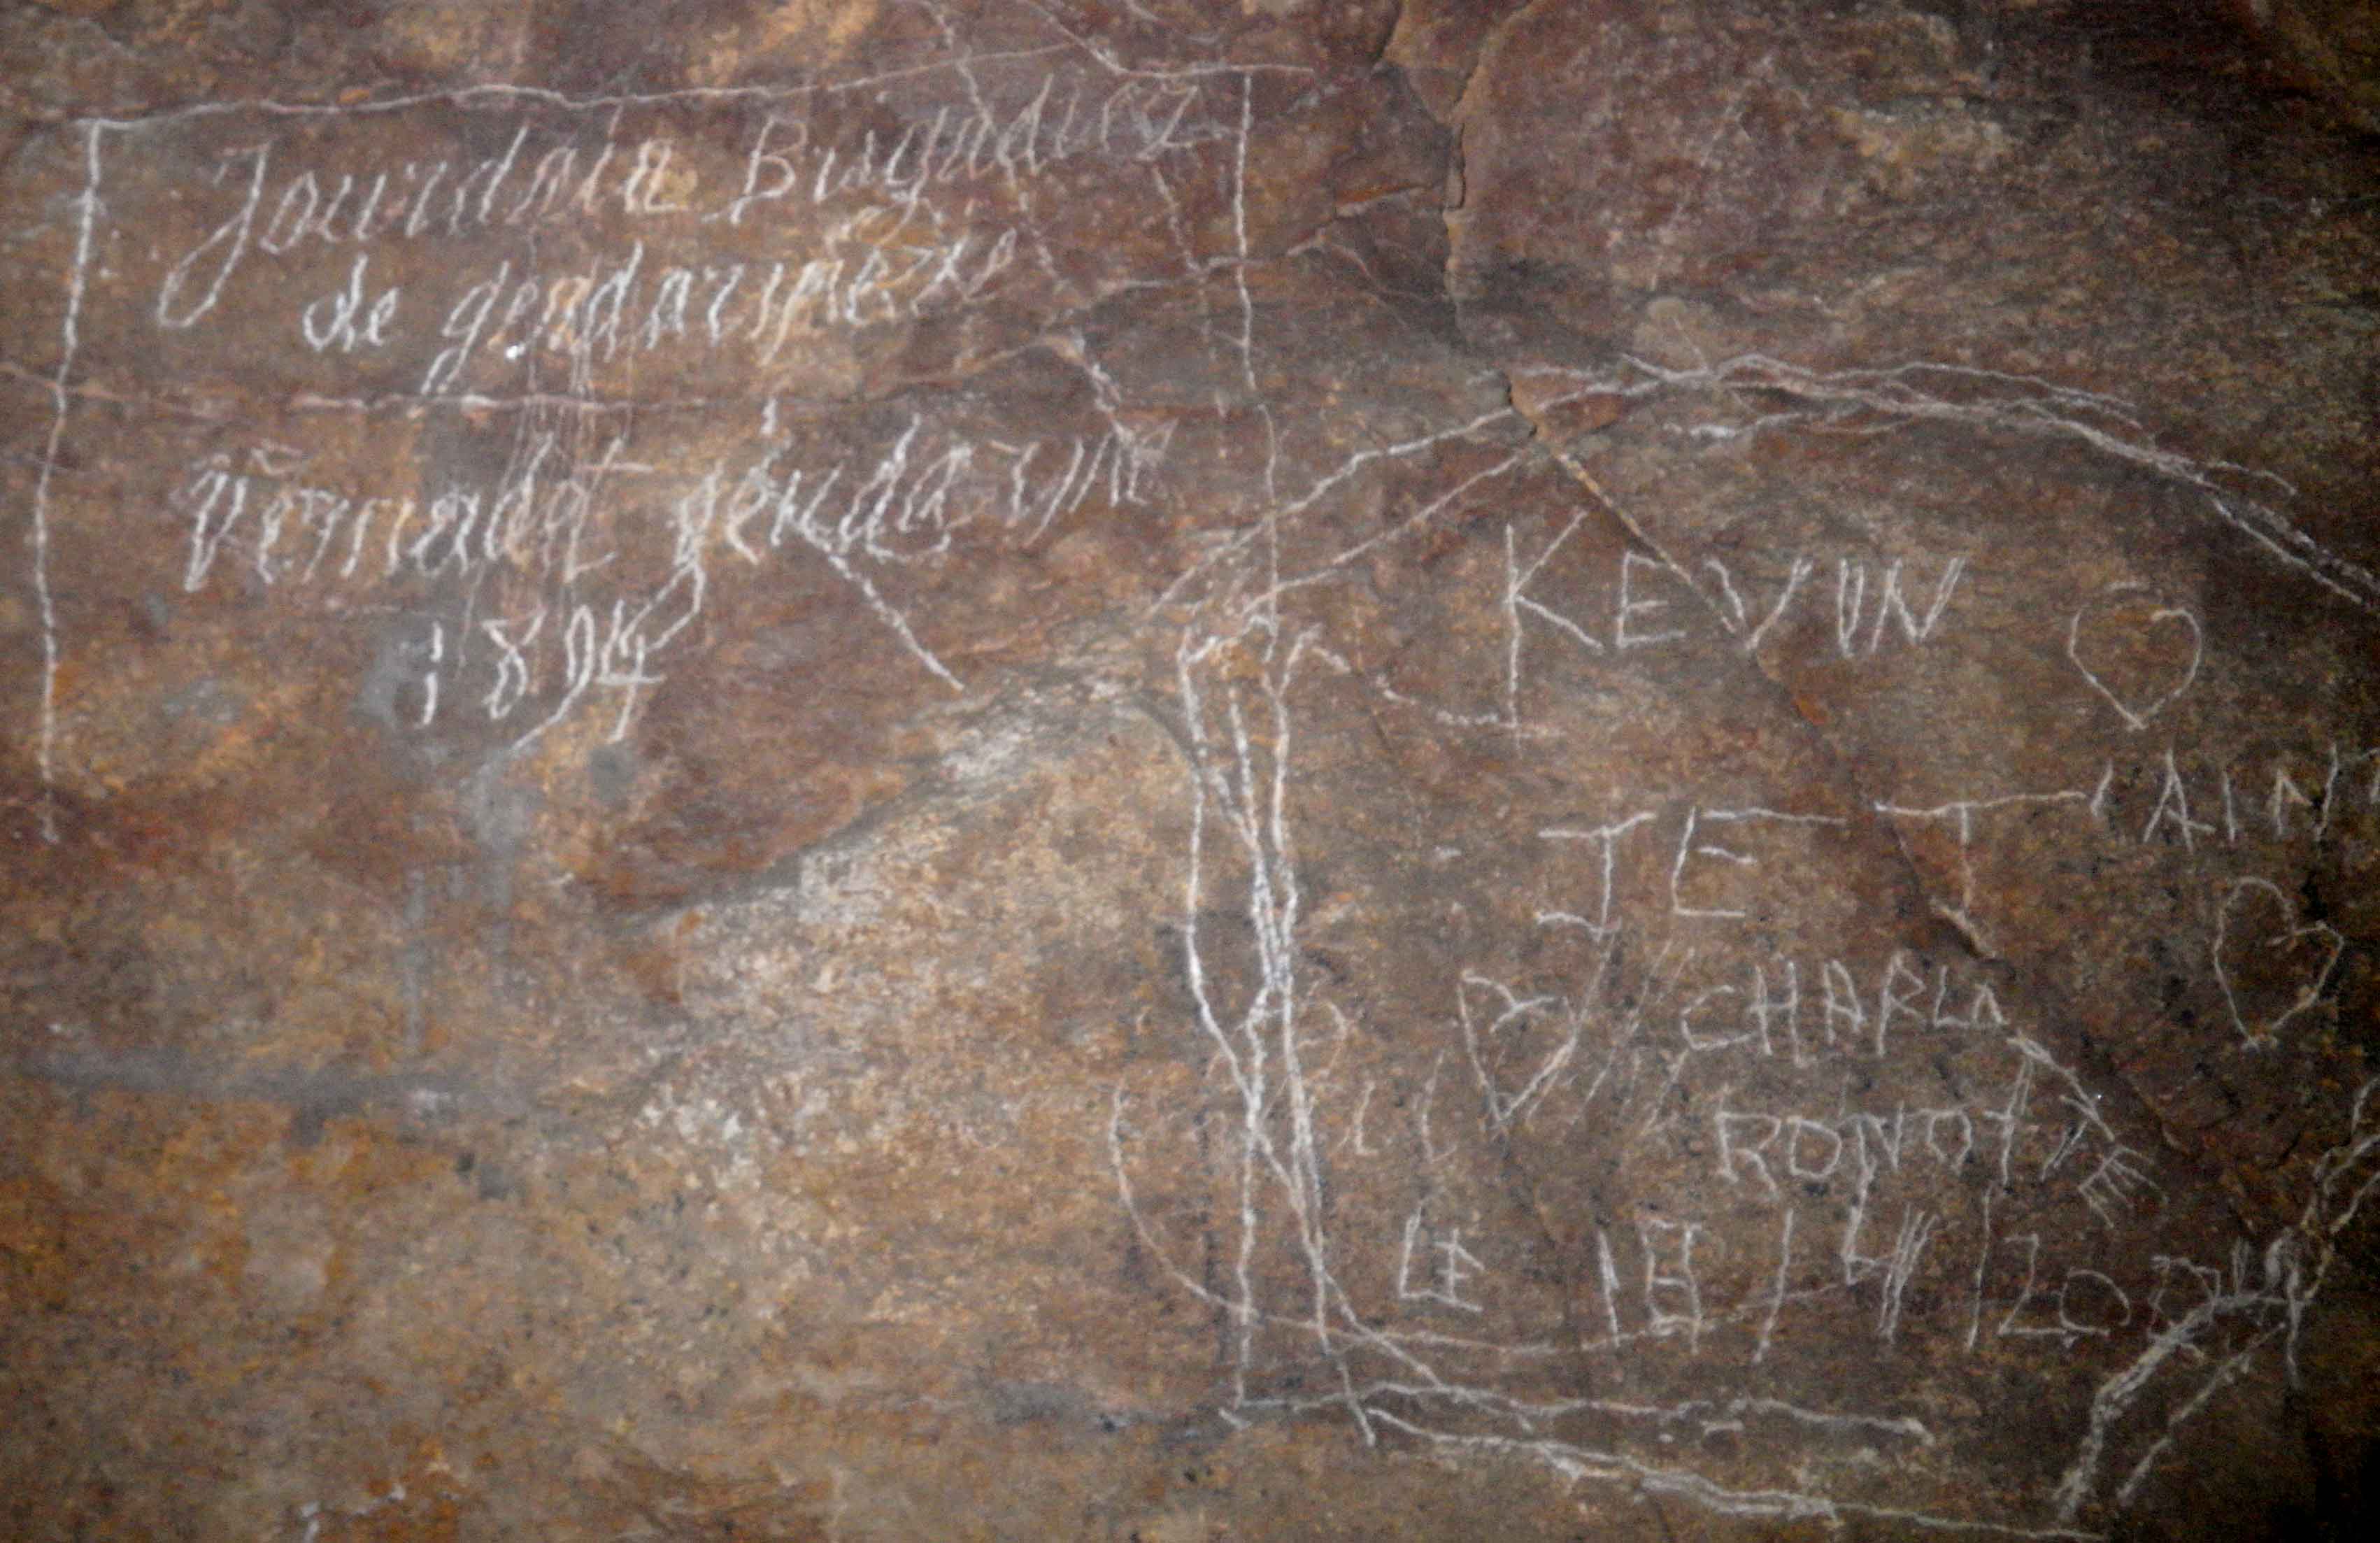 Jourdain Brigadier
de gendarmerie
Vernadet gendarme
1894
KEVIN
JE T'AIM
CHARLA
LE 18/4/20